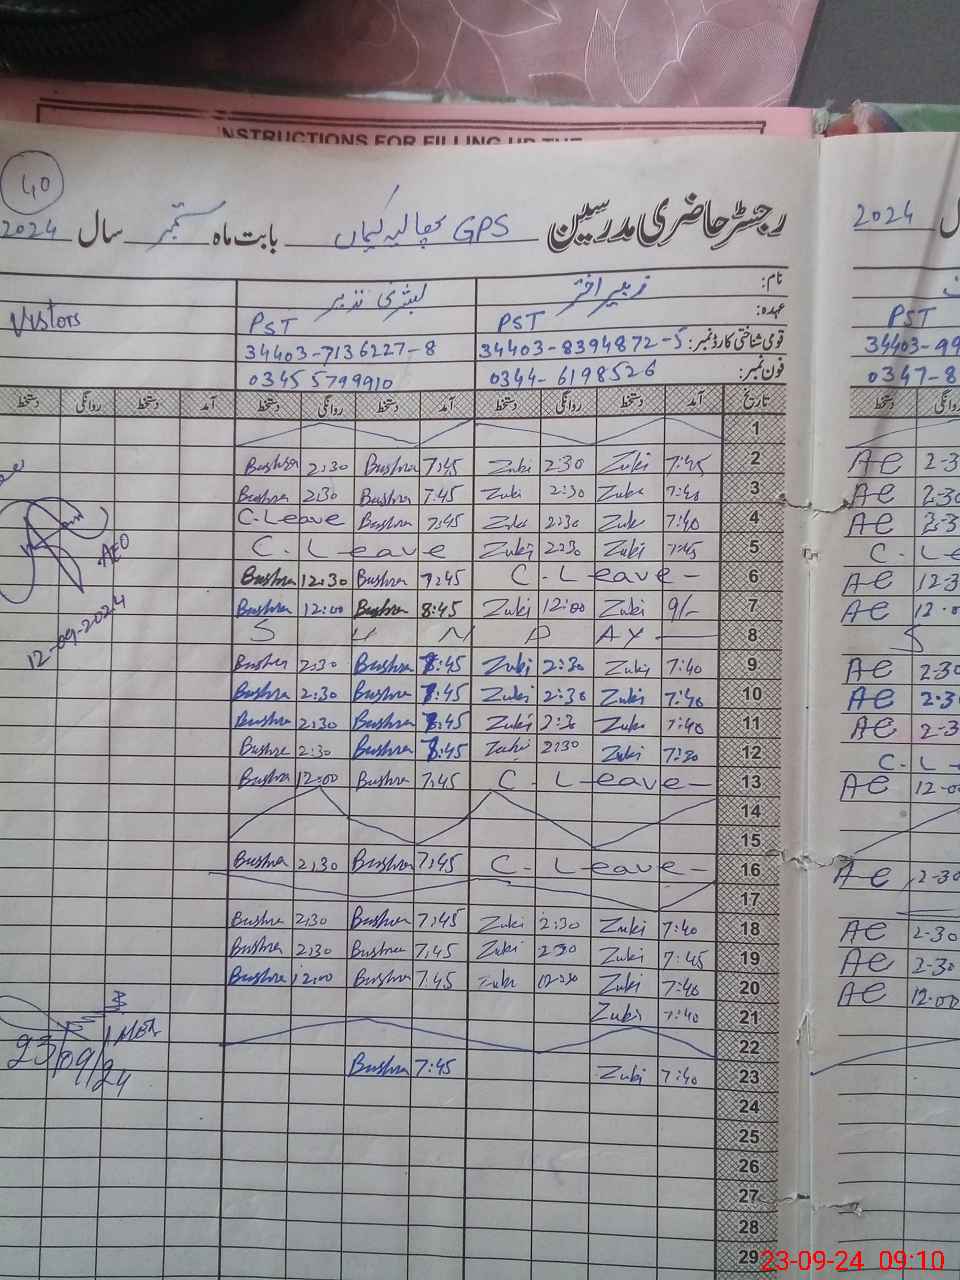 INSTRUCTIONS FOR FILLING UP THE
40
رجسٹر حاضری مدرسین GPS بابت ماہ ستمبر سال 2024
2024
نام: زبیر اختر بشریٰ نذیر
عہدہ: PST PST Visitors PST
قومی شناختی کارڈ نمبر: 34403-8394872-5 34403-7136227-8 34403-99
فون نمبر: 0344-6198526 0345 5799910 0347-8
تاریخ آمد دستخط روانگی دستخط آمد دستخط روانگی دستخط آمد دستخط روانگی دستخط
1
Bushra 2:30 Bushra 7:45 Zuki 2:30 Zuki 7:45 2 AE 2-3
Bushra 2:30 Bushra 7:45 Zuki 2:30 Zuki 7:40 3 AE 2-30
C-Leave Bushra 7:45 Zuki 2:30 Zuki 7:40 4 AE 2-3
C. Leave Zuki 2:30 Zuki 7:45 5 C-Le
Bushra 12:30 Bushra 7:45 C-Leave- 6 AE 12-3
Bushra 12:00 Bushra 8:45 Zuki 12:00 Zuki 9/- 7 AE 12-0
S U N D AY 8 S
Bushra 2:30 Bushra 8:45 Zuki 2:30 Zuki 7:40 9 AE 2-30
Bushra 2:30 Bushra 8:45 Zuki 2:30 Zuki 7:40 10 AE 2-3
Bushra 2:30 Bushra 8:45 Zuki 2:30 Zuki 7:40 11 AE 2-3
Bushra 2:30 Bushra 8:45 Zuki 2:30 Zuki 7:30 12 C-L
Bushra 12:00 Bushra 7:45 C-Leave- 13 AE 12-0
14
15
Bushra 2:30 Bushra 7:45 C-Leave- 16 AE 2-30
17
Bushra 2:30 Bushra 7:45 Zuki 2:30 Zuki 7:40 18 AE 2-30
Bushra 2:30 Bushra 7:45 Zuki 2:30 Zuki 7:45 19 AE 2-30
Bushra 12:00 Bushra 7:45 Zuki Zuki 7:40 20 AE 12-00
Zuki 7:40 21
22
Bushra 7:45 Zuki 7:40 23
24
25
26
27
28
29
AEO
12-09-2024
23/09/24
23-09-24 09:10